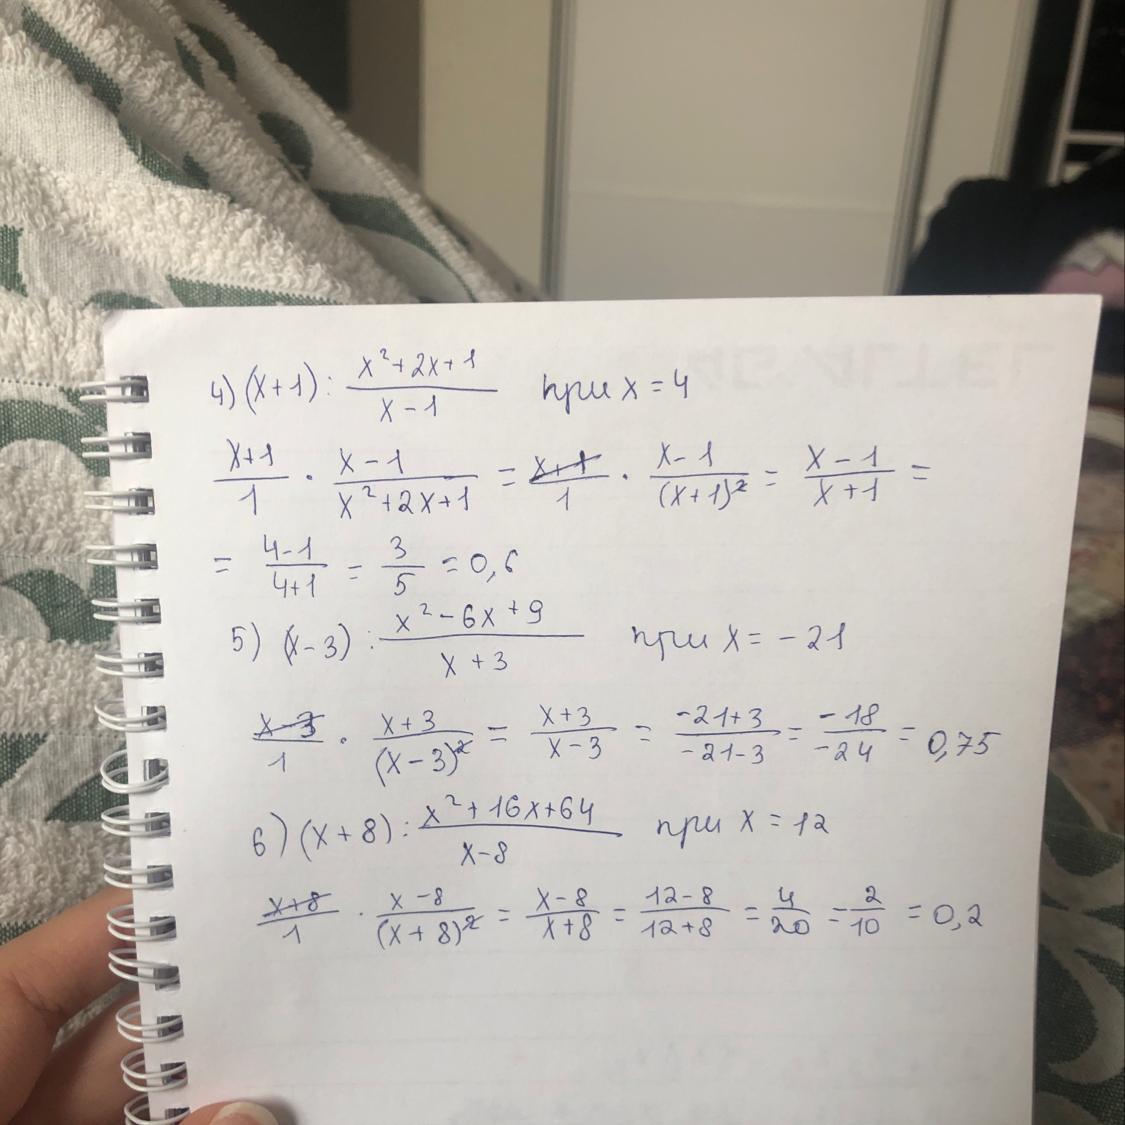 4) (x+1) : (x²+2x+1)/(x-1) при x = 4
(x+1)/1 · (x-1)/(x²+2x+1) = (x+1)/1 · (x-1)/(x+1)² = (x-1)/(x+1) =
= (4-1)/(4+1) = 3/5 = 0,6
5) (x-3) : (x²-6x+9)/(x+3) при x = -21
(x-3)/1 · (x+3)/(x-3)² = (x+3)/(x-3) = (-21+3)/(-21-3) = (-18)/(-24) = 0,75
6) (x+8) : (x²+16x+64)/(x-8) при x = 12
(x+8)/1 · (x-8)/(x+8)² = (x-8)/(x+8) = (12-8)/(12+8) = 4/20 = 2/10 = 0,2